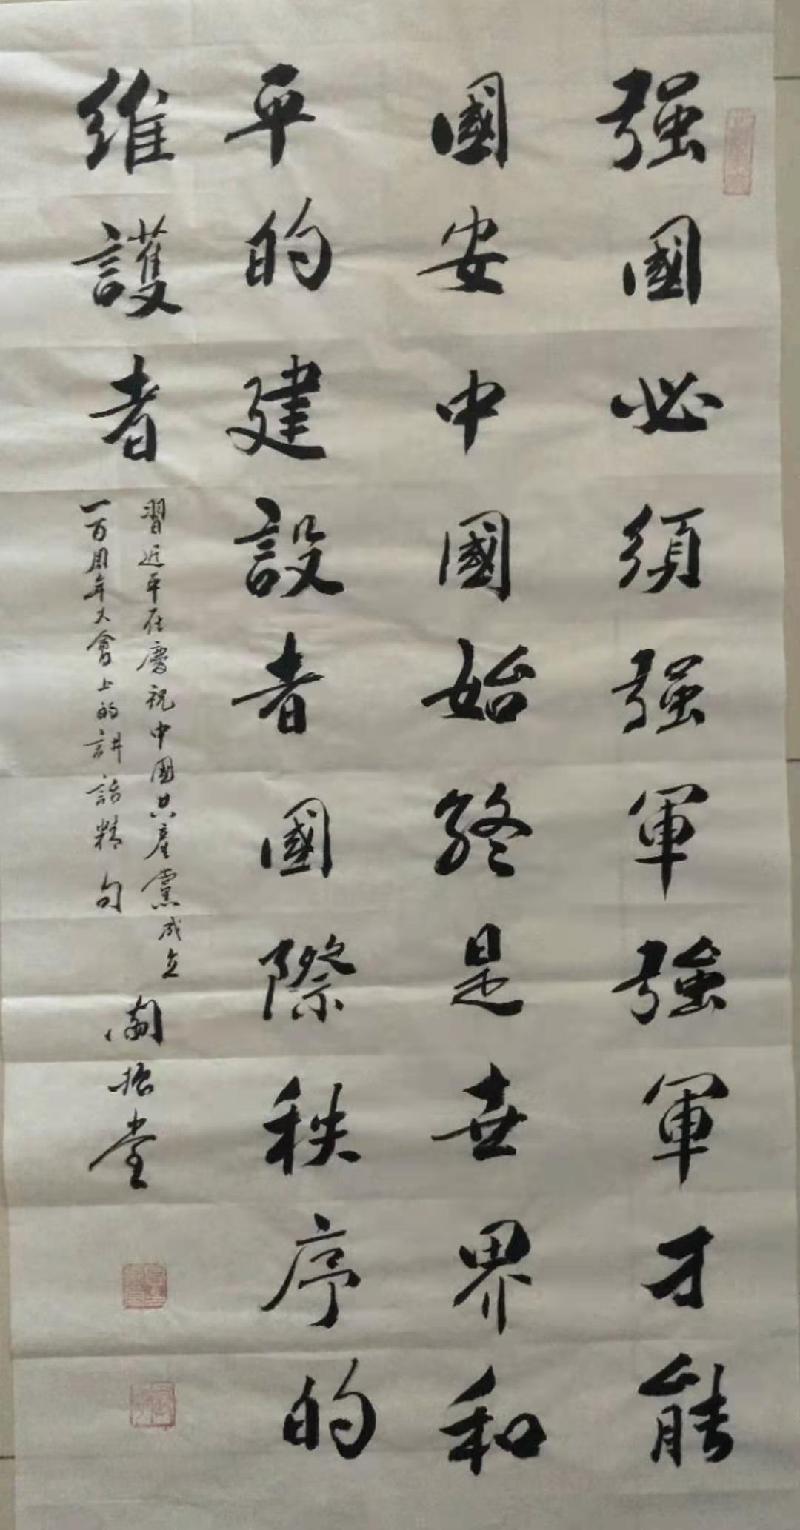 强國必須强軍強軍才能
國安中國始終是世界和
平的建設者國際秩序的
維護者
習近平在慶祝中國共産黨成立
一百周年大會上的講話精句
振堂